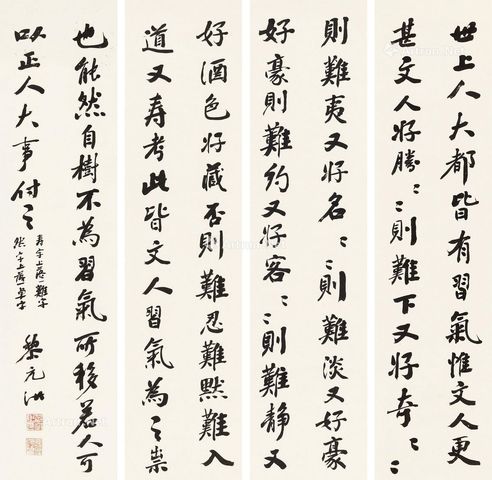 世上人大都皆有習氣惟文人更
甚文人好勝〻〻則難下又好奇〻〻
則難夷又好名〻〻則難淡又好豪
好豪則難約又好客〻〻則難静又
好酒色好藏否則難忍難默難入
道又寿考此皆文人習氣為之祟
也能然自樹不為習氣所移若人可
以正人大事付之
寿字上落一難字
然字上落一卓字
黎元洪